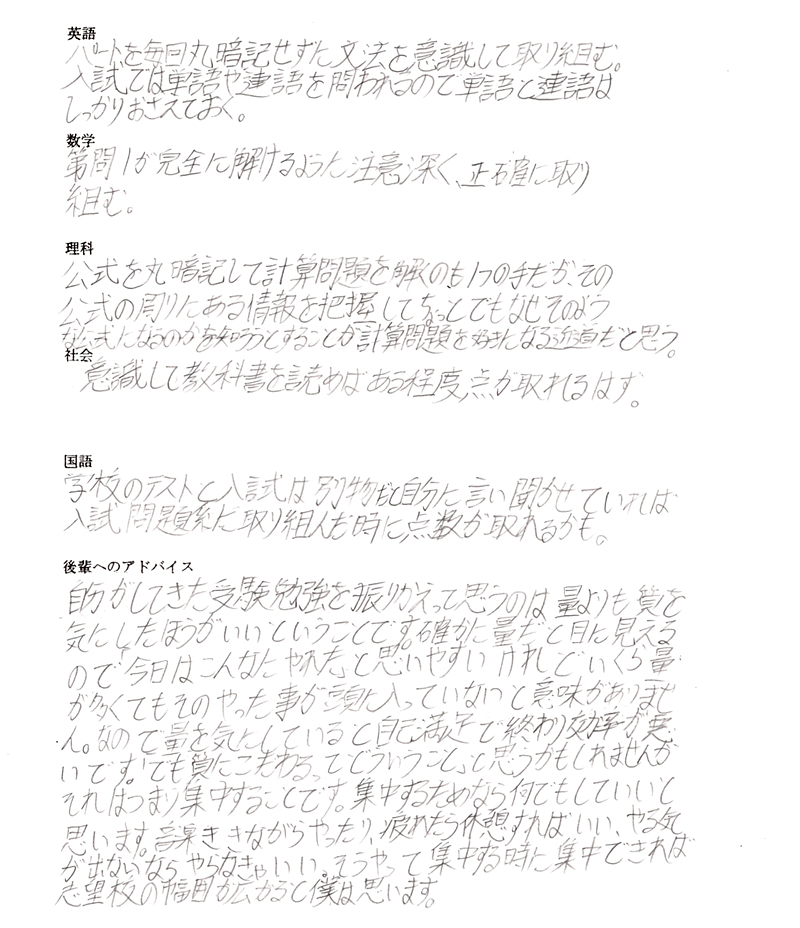 英語
パートを毎回丸暗記せずに文法を意識して取り組む。
入試では単語や連語を問われるので単語と連語は
しっかりおさえておく。
数学
第問1が完全に解けるように注意深く、正確に取り
組む。
理科
公式を丸暗記して計算問題を解くのも1つの手だが、その
公式の周りにある情報を把握してちょっとでもなぜそのよう
な公式になるのかを知ろうとすることが計算問題を好きになる近道だと思う。
社会
意識して教科書を読めばある程度、点が取れるはず。
国語
学校のテストと入試は別物だと自分に言い聞かせていれば
入試問題系に取り組んだ時に点数が取れるかも。
後輩へのアドバイス
自分がしてきた受験勉強を振りかえって思うのは量よりも質を
気にしたほうがいいということです。確かに量だと目に見える
ので「今日はこんなにやれた」と思いやすいけれどいくら量
が多くてもそのやった事が頭に入っていないと意味がありませ
ん。なので量を気にしていると自己満足で終わり効率が悪
いです。「でも質にこだわるってどういうこと」と思うかもしれませんが
それはつまり集中することです。集中するためなら何でもしていいと
思います。音楽ききながらやったり、疲れたら休憩すればいい、やる気
が出ないならやらなきゃいい。そうやって集中する時に集中できれば
志望校の幅が広がると僕は思います。